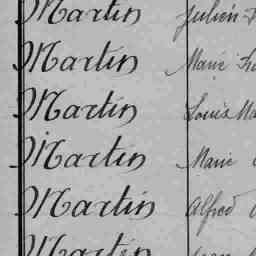 Martin Julien
Martin Marie
Martin Louis Ma
Martin Marie
Martin Alfred
Martin